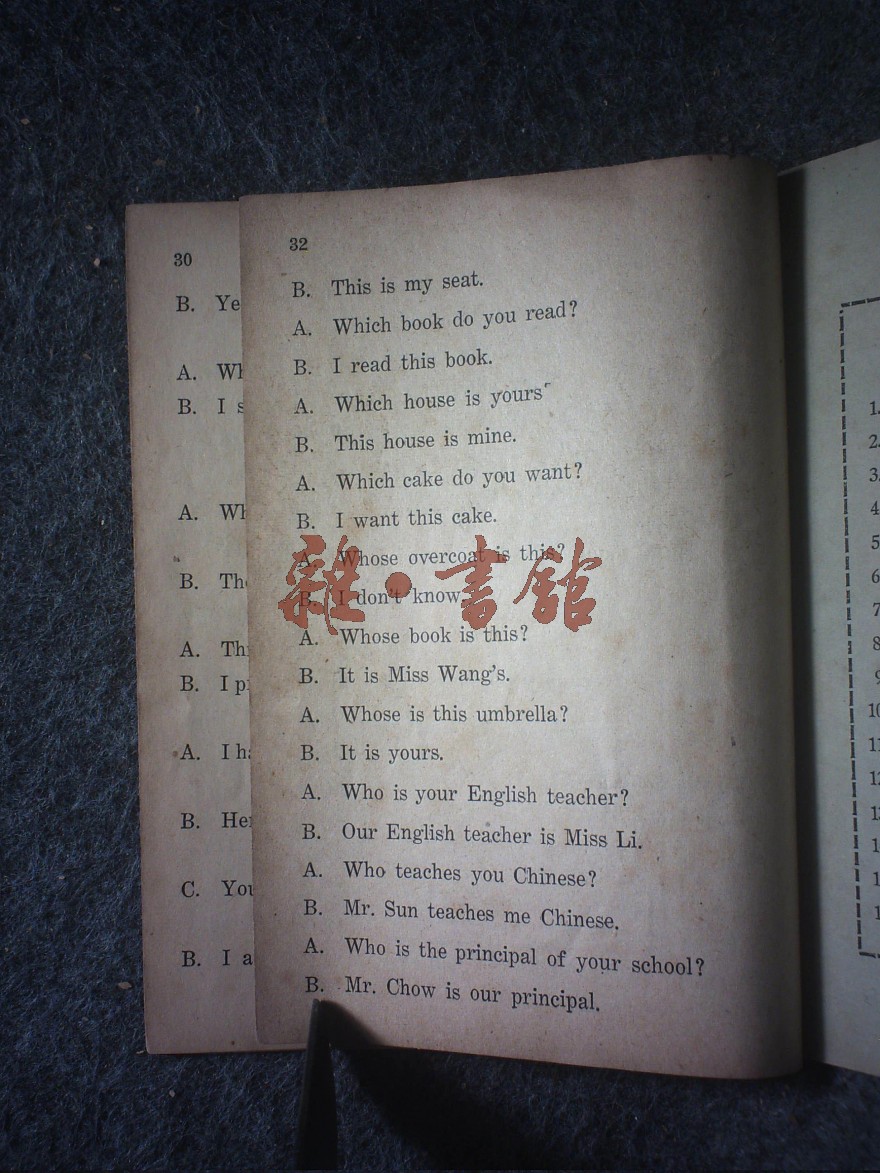 30
B. Ye
A. Wh
B. I s
A. Wh
B. The
A. Thi
B. I p
A. I ha
B. Her
C. You
B. I a
32
B. This is my seat.
A. Which book do you read?
B. I read this book.
A. Which house is yours
B. This house is mine.
A. Which cake do you want?
B. I want this cake.
A. Whose overcoat is this?
B. I don't know.
A. Whose book is this?
B. It is Miss Wang's.
A. Whose is this umbrella?
B. It is yours.
A. Who is your English teacher?
B. Our English teacher is Miss Li.
A. Who teaches you Chinese?
B. Mr. Sun teaches me Chinese.
A. Who is the principal of your school?
B. Mr. Chow is our principal.
雜·書館
1.
2.
3.
4
5
6
7
8
9
10
11
12